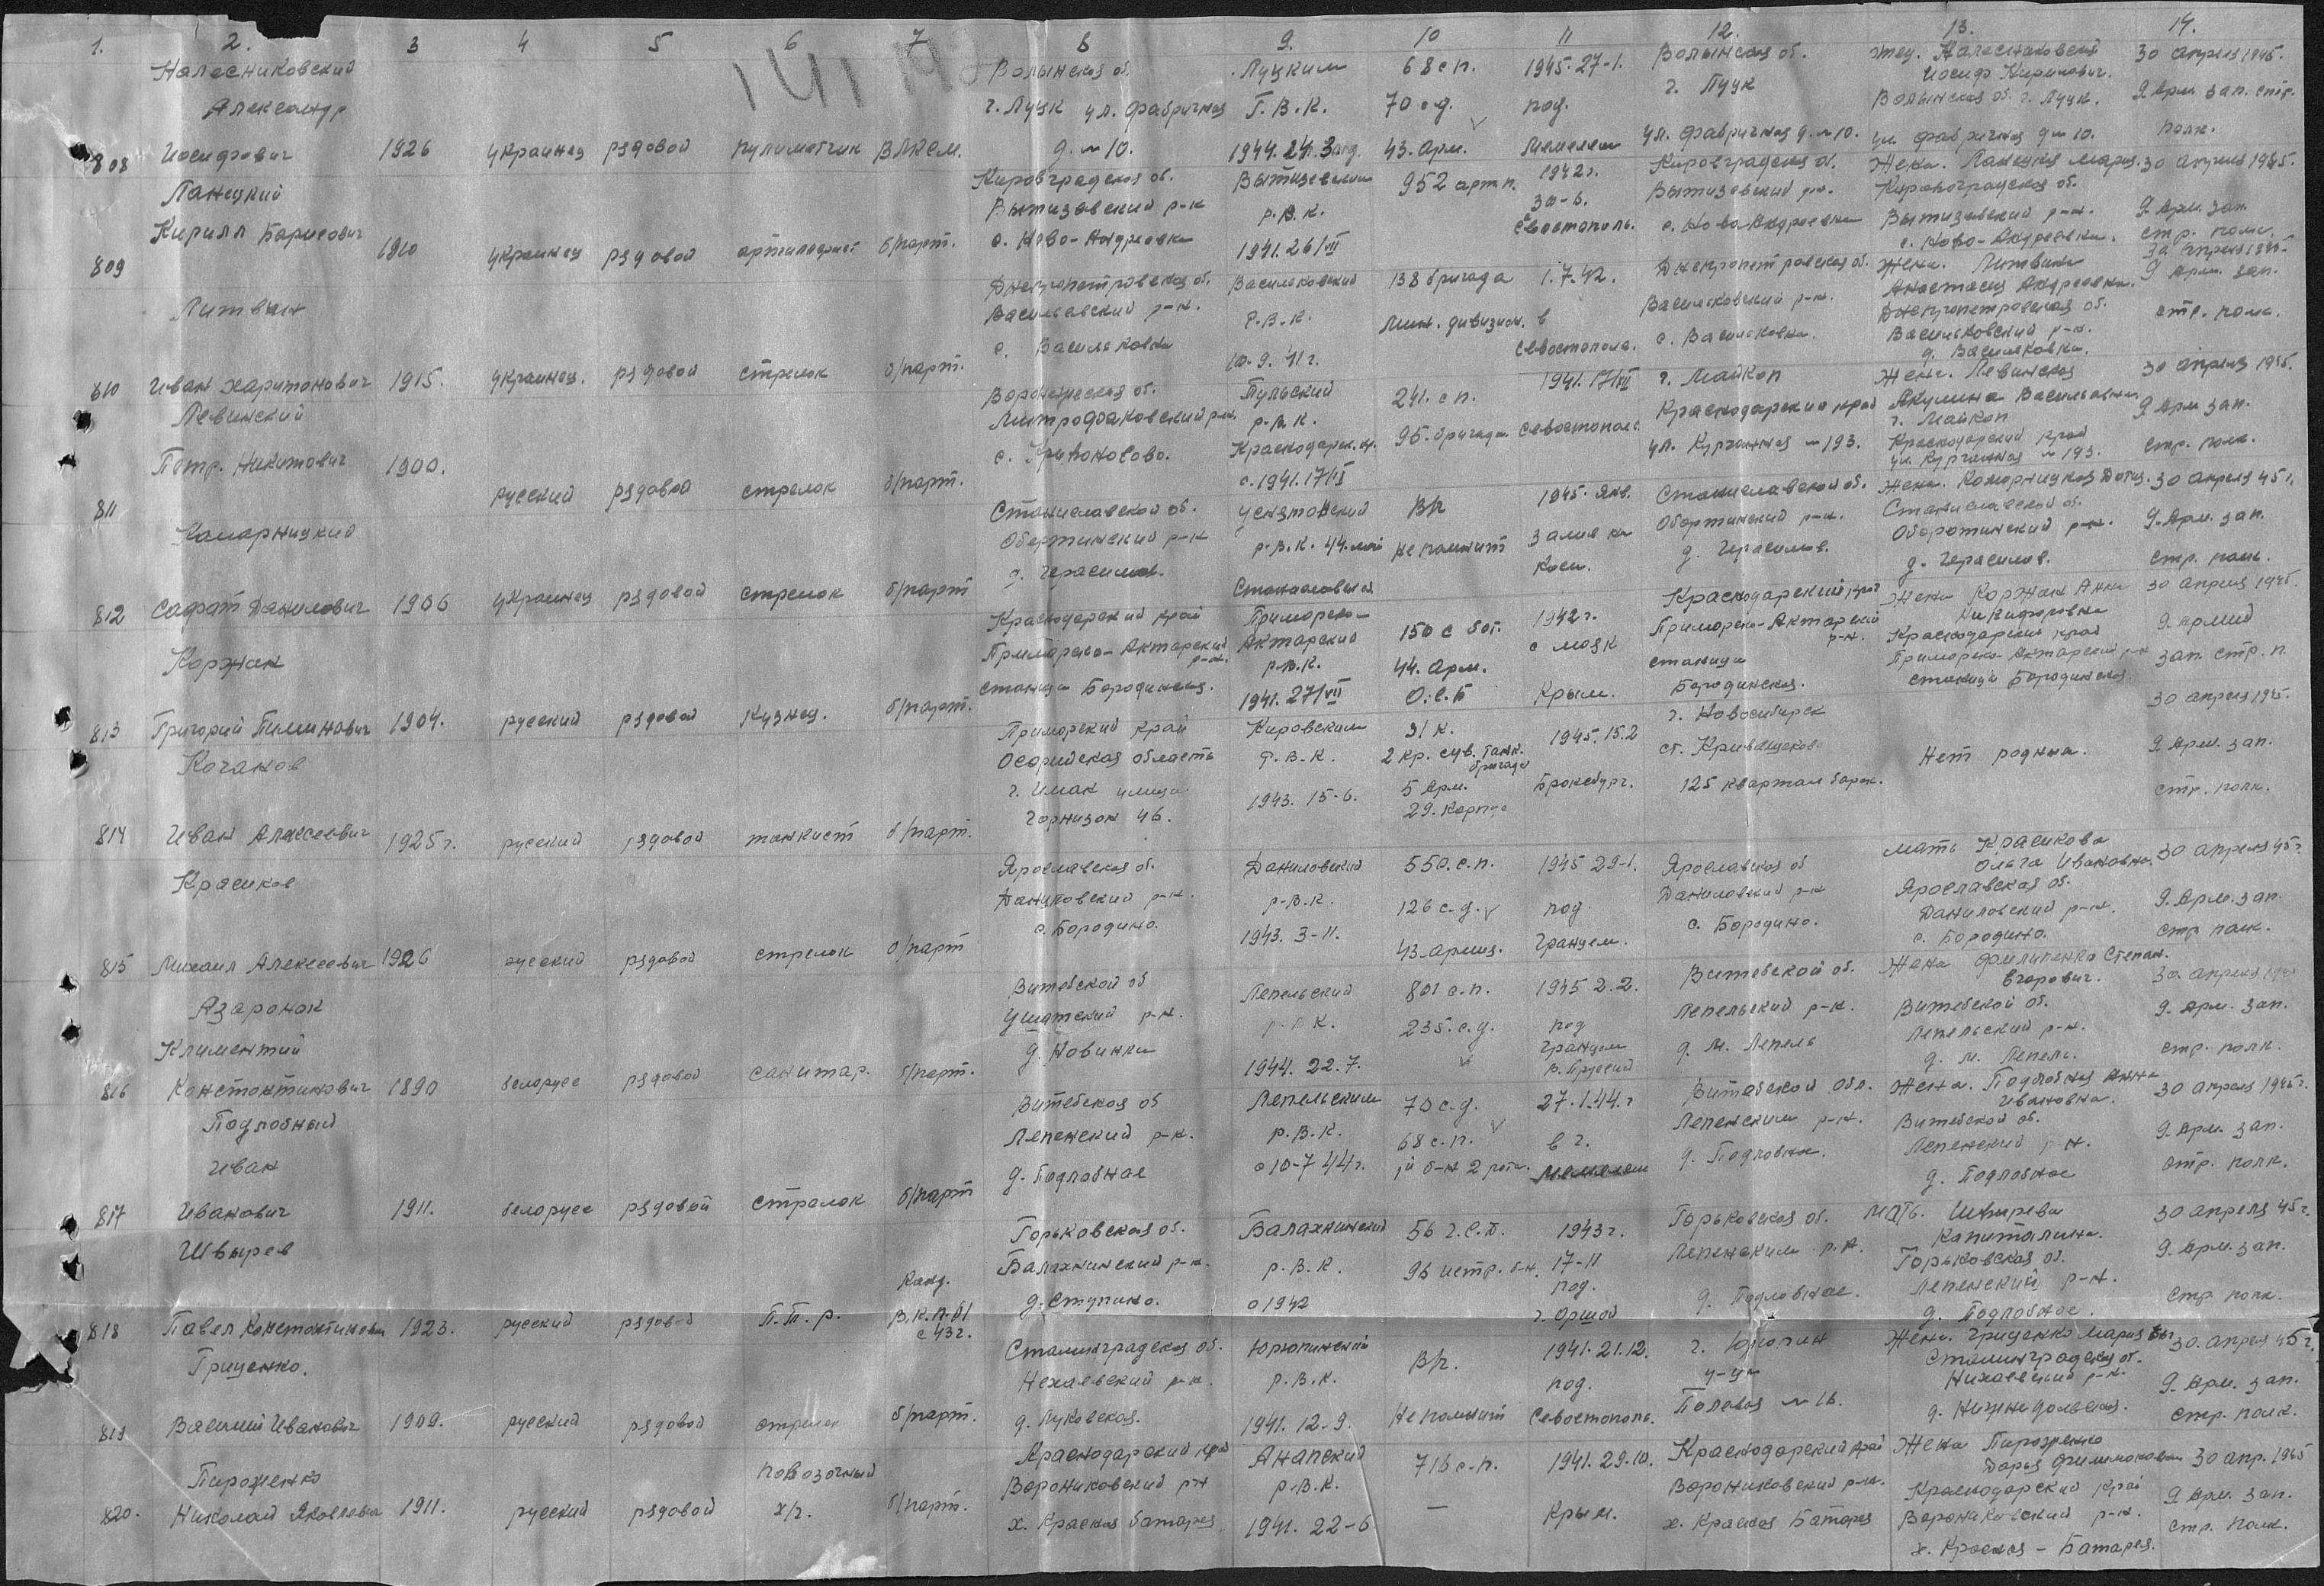 1. 2. 3 4 5 6 7 8 9. 10 11 12. 13. 14.
Налесниковский
Александр
808 Иосифович 1926 украинец рядовой пулиметчик ВЛКСМ.
Волынская об.
г. Луцк ул. Фабричная
д. № 10.
Луцким
Г.В.К.
1944.
68 с п.
70 с д.
43. Арм.
1945. 27-1.
под.
Мемелем
Волынская об.
г. Луцк
ул. Фабричная д. № 10.
Налесниковский
Иосиф Кирилович.
Волынская об. г. Луцк.
ул. Фабричная д № 10.
30 апреля 1945.
9 Арм. зап. стр.
полк.
Ланецкий
Кирилл Барисович
809 1910 украинец рядовой артилерист б/парт.
Кировградская об.
Вытизевский р-к
с. Ново-Андреевка
Вытизевским
р.В.К.
1941. 26/VII
952 арт п.
1942 г.
Севостополь.
Кировградская об.
Вытизевский р-н.
с. Ново Андреевка
Жена. Ланецкая Мария.
Кировоградская об.
Вытизевский р-н.
с. Ново-Андреевка.
30 апреля 1945.
9 Арм. зап.
стр. полк.
Литвин
810 Иван Харитонович 1915. украинец. рядовой стрелок б/парт.
Днепропетровская об.
Васильевский р-н.
с. Василековка
Василековский
Р.В.К.
10. 9. 41 г.
138 бригада
Мин. дивизион.
1. 7. 42.
в
Севостополь.
Днепропетровская об.
Васильковский р-н.
с. Васильковка.
Жена. Литвина
Анастасия Андреевна.
Днепропетровская об.
Васильковский р-н.
д. Васильковка.
30 апреля 1945
9 Арм. зап.
стр. полк.
Левинский
Петр. Никитович 1900.
811 русский рядовой стрелок б/парт.
Воронежская об.
Митрофановский р-н
с. Кривоносово.
Тульский
р.В.К.
Краснодарск. кр.
с. 1941. 17/IX
241. с п.
95. бригада
1941. 17/XII
Севостополь.
г. Майкоп
Краснодарский край
ул. Курганная № 193.
Жена. Левинская
Акулина Васильевна
г. Майкоп
Краснодарский край
ул. Курганная № 193.
30 апреля 1945.
9 Арм зап.
стр. полк.
Комарницкий
812 Сафат Данилович 1906 украинец рядовой стрелок б/парт
Станиславской об.
Обертинский р-н
д. Герасимов.
р.В.К. 44. май
Станиславский
В/р
не помнит
1945. Янв.
Залив на
Коси.
Станиславской об.
Обертинский р-н.
д. Герасимов.
Жена. Комарницкая
Станиславской об.
Оборотинский р-н.
д. Герасимов.
30 апреля 45 г.
9. Арм. зап.
стр. полк.
Коржан
813 Григорий 1904. русский рядовой кузнец. б/парт.
Краснодарский край
Приморско-Ахтарский
р-н.
станица Бородинская.
Приморско-
Ахтарский
р.В.К.
1941. 27/VII
150 с бат.
44. Арм.
О.С.Б
1942 г.
Крым.
Краснодарский край
Приморско-Ахтарский
р-н.
станица
Бородинская.
Жена Коржан Анна
Никифоровна
Краснодарский край
Приморско-Ахтарский р-н
станица Бородинская
30 апреля 1945.
9. армия
зап. стр. п.
Кочанов
814 Иван Алексеевич 1925 г. русский рядовой танкист б/парт.
Приморский край
область
г. Иман улица
Горнизон 46.
Кировским
Р.В.К.
1943. 15-6.
31 К.
2 кр. сув. танк.
бригада
5 Арм.
29. Корпус
1945. 15. 2
г. Новосибирск
ст. Кривощеково
125 квартал барак.
Нет родных.
30 апреля 1945.
9. Арм. зап.
стр. полк.
Красиков
815 Михаил Алексеевич 1926 русский рядовой стрелок б/парт
Ярославская об.
Даниловский р-н.
с. Бородино.
Даниловский
р.В.К.
1943. 3-11.
550. с. п.
126 с. д.
43 армия.
1945 29-1.
под
Гранцем.
Ярославская об
Даниловский р-н
с. Бородино.
Мать Красикова
Ольга Ивановна.
Ярославская об.
Даниловский р-н.
с. Бородино.
30 апреля 45 г.
9. Арм. зап.
стр полк.
Азаронок
Климентий
816 Константинович 1890 белорусс рядовой санитар. б/парт.
Витебской об
Ушатский р-н.
д. Новинки
Лепельский
р.В.К.
1944. 22. 7.
801 с. п.
235. с. д.
1945 2. 2.
под
Гранцем
В. Пруссия
Витебской об.
Лепельский р-н.
д. м. Лепель
Жена Филипенко Степан.
Егорович.
Витебской об.
Лепельский р-н.
д. м. Лепель.
30 апреля 1945
9. Арм. зап.
стр. полк.
Подлобный
Иван
817 Иванович 1911. белорусс рядовой стрелок б/парт
Витебская об
Лепенский р-н.
д. Подлобное
Лепельским
р.В.К.
с 10-7 44 г.
70 с. д.
68 с. п.
1й б-н 2 рота.
27. 1. 44. г
в г.
Мемелем
Витебской обл.
Лепенским р-н.
д. Подлобна.
Жена. Подлобная Анна
Ивановна.
Витебской об.
Лепенский р-н.
д. Подлобное
30 апреля 1945 г.
9. Арм. зап.
стр. полк.
Швырев
818 Павел Константинович 1923. русский рядовой П.Т.р.
Канд.
В.К.П.(б)
с 43 г.
Горьковская об.
Балахнинский р-н.
д. Ступино.
Балахнинский
р.В.К.
с 1942
56 г. с. д.
96 истр. б-н.
1943 г.
17-11
под.
г. Оршой
Горьковская об.
Лепенским р.н.
д. Подлобное.
Мать. Швырева
Капиталина.
Горьковская об.
Лепенский р-н.
д. Подлобное.
30 апреля 45 г.
9. Арм. зап.
стр полк.
Гриценко.
819 Василий Иванович 1909. русский рядовой стрелок б/парт.
Сталинградская об.
Нехаевский р-н.
д. Луковская.
Юрюпинский
р.В.К.
1941. 12-9.
В/р.
Не помнит
1941. 21. 12.
под.
Севостополь.
г. Юрюпин
Полевая № 16.
Жена. Гриценко Мария
Сталинградская об.
Нихаевский р-н.
30. апреля 45 г.
9. Арм. зап.
стр. полк.
Пироженко
820. Николай Яковлевич 1911. русский рядовой
повозочный
х/р.
б/парт.
Краснодарский край
Варониковский р-н
х. Красная батарея
Анапский
р.В.К.
1941. 22-6
716 с. п.
—
1941. 29. 10.
Крым.
Краснодарский край
Варониковский р-н.
х. Красная Батарея
Жена Пироженко
Дарья
Краснодарский край
Варониковский р-н.
х. Красная - Батарея.
30 апр. 1945
9 Арм. зап.
стр. полк.